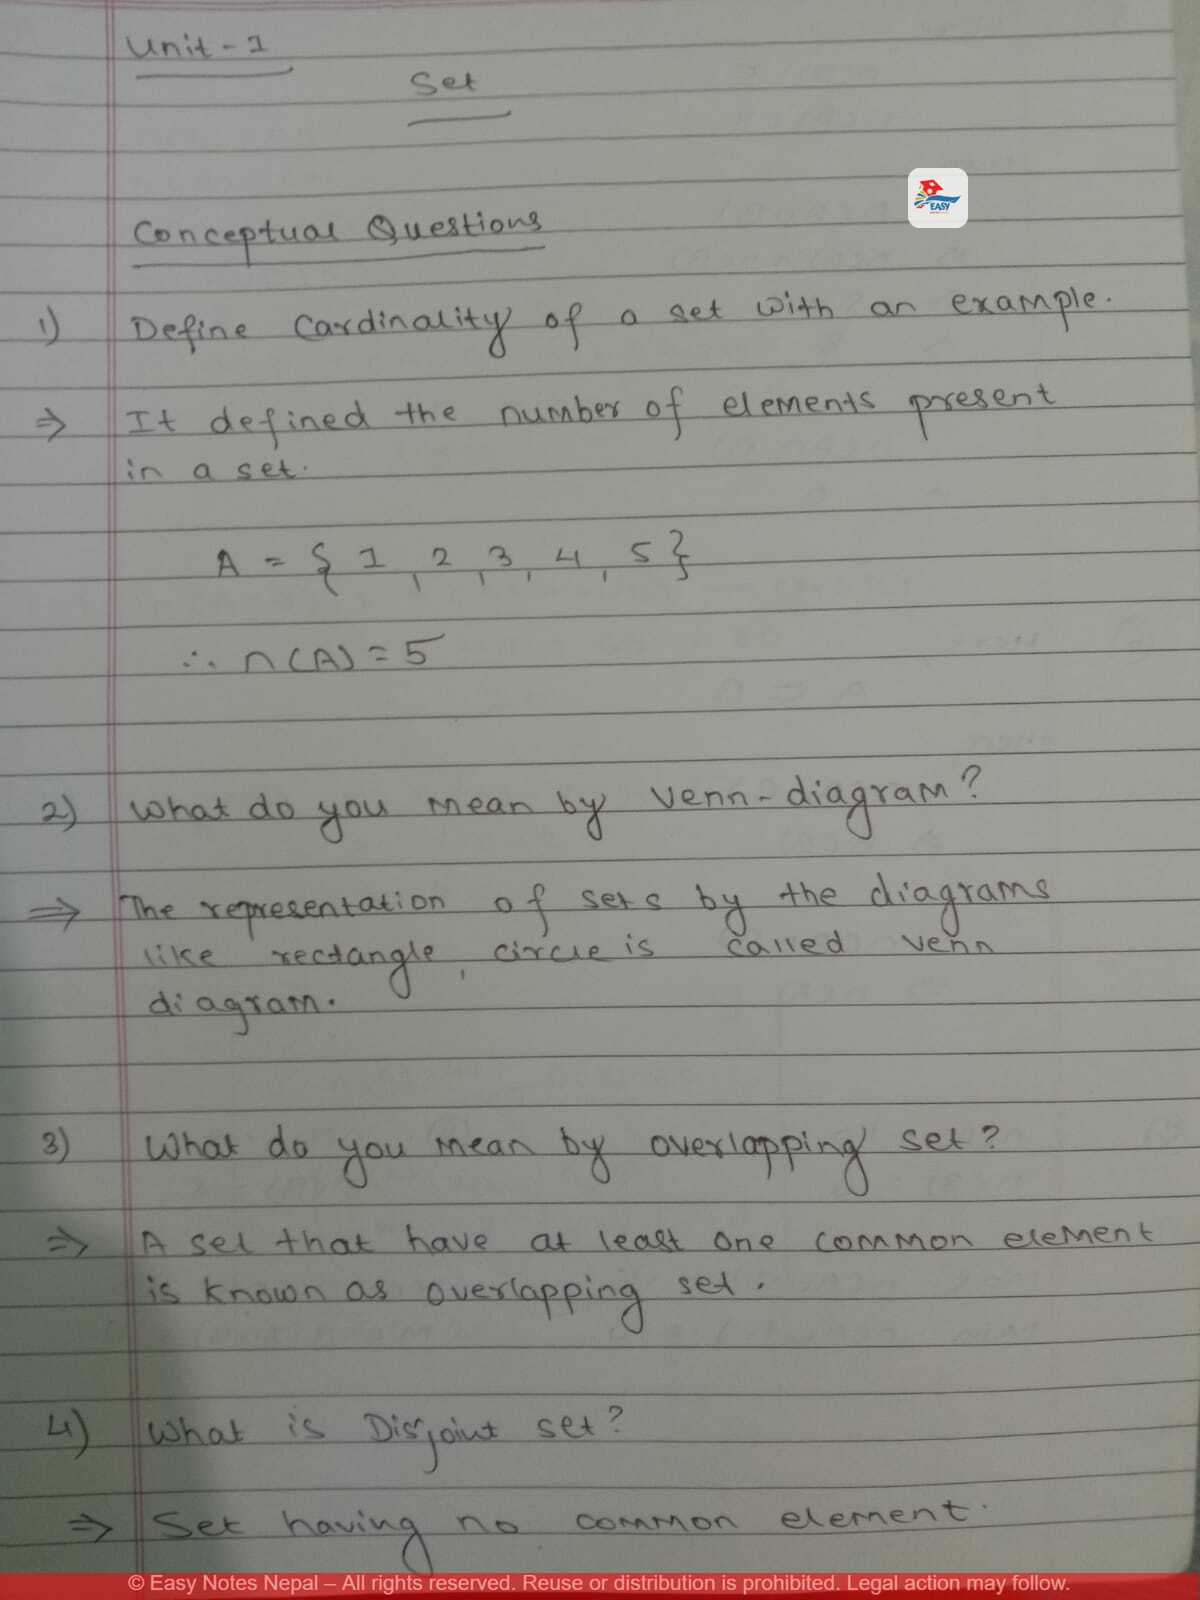 Unit - 1
Set
EASY
Conceptual Questions
1) Define Cardinality of a set with an example.
⇒ It defined the number of elements present
in a set.
A = { 1, 2, 3, 4, 5 }
∴ n(A) = 5
2) What do you mean by venn-diagram?
⇒ The representation of sets by the diagrams
like rectangle, circle is called venn
diagram.
3) What do you mean by overlapping set?
⇒ A set that have at least one common element
is known as overlapping set.
4) What is Disjoint set?
⇒ Set having no common element.
© Easy Notes Nepal – All rights reserved. Reuse or distribution is prohibited. Legal action may follow.